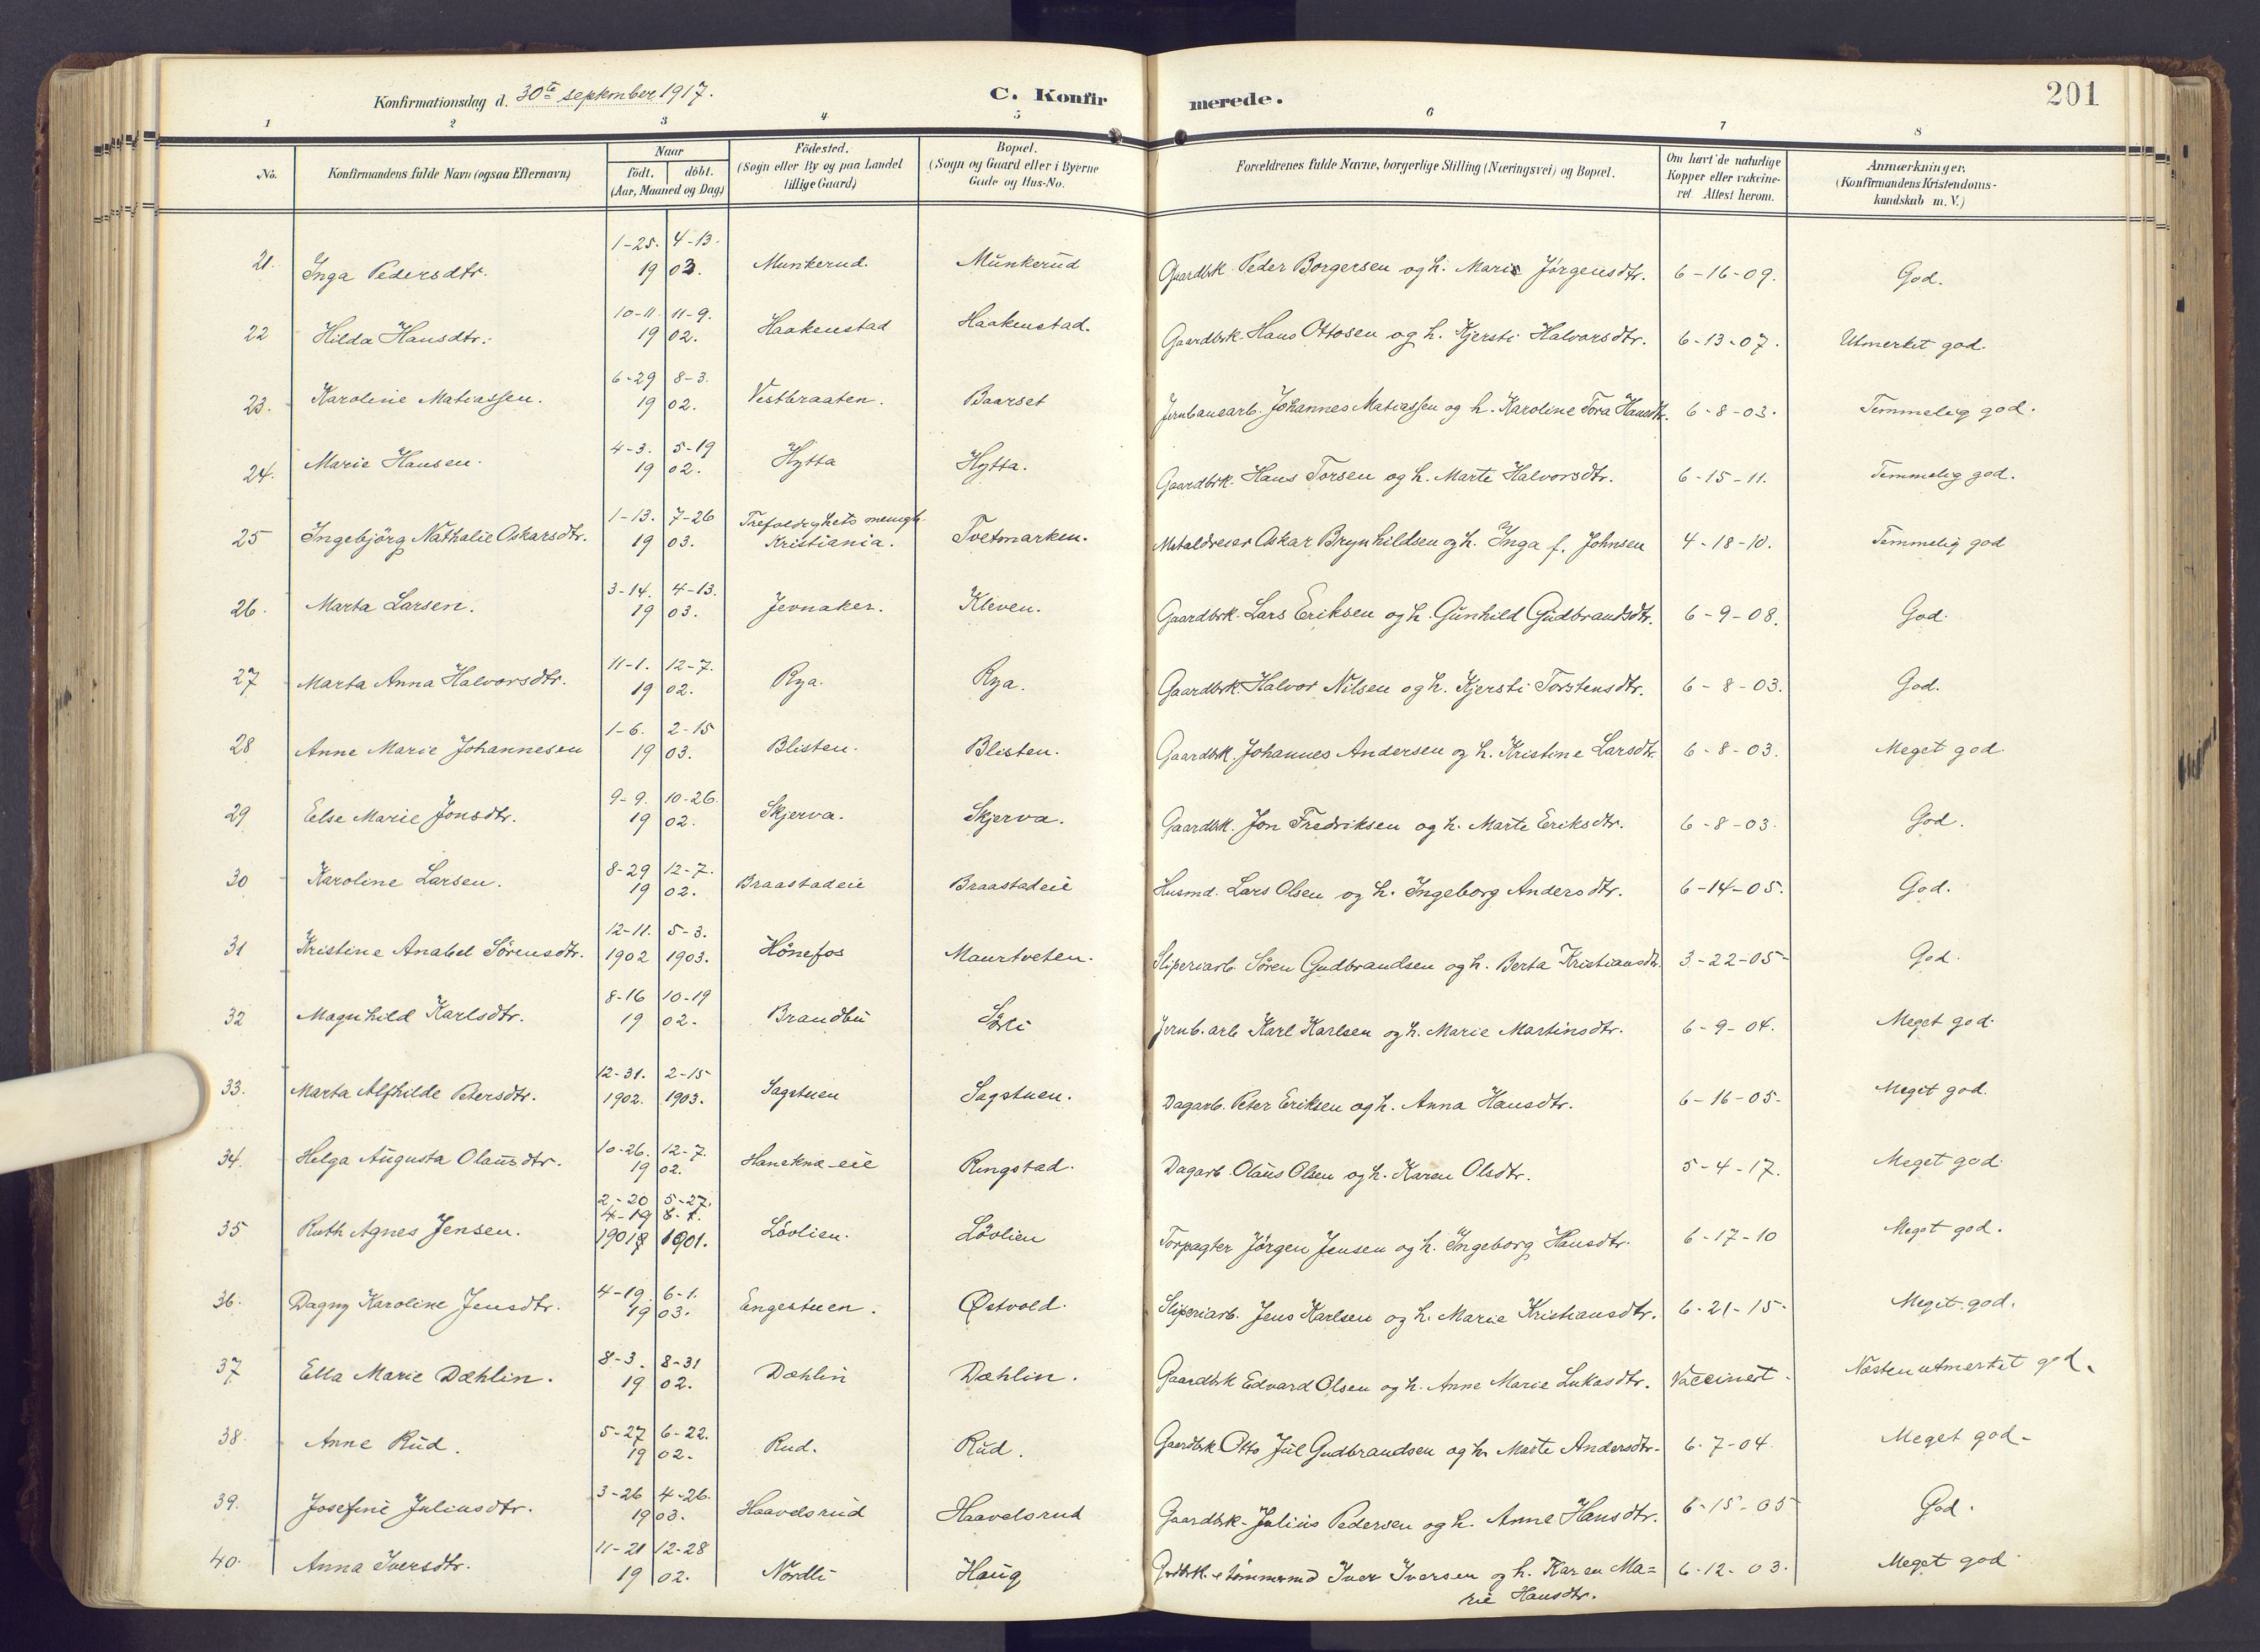 Konfirmationsdag d. 30te september 1917. C. Konfirmerede. 201
1 2 3 4 5 6 7 8
No. Konfirmandens fulde Navn (ogsaa Efternavn) Naar födt. döbt. (Aar, Maaned og Dag) Födested. (Sogn eller By og paa Landet tillige Gaard) Bopæl. (Sogn og Gaard eller i Byerne Gade og Hus-No. Forældrenes fulde Navne, borgerlige Stilling (Næringsvei) og Bopæl. Om havt de naturlige Kopper eller vakcineret. Attest herom. Anmærkninger. (Konfirmandens Kristendomskundskab m. V.)
21. Inga Pedersdtr. 1-25. 4-13. 1903. Munkerud. Munkerud Gaardbrk. Peder Borgersen og h. Marie Jörgensdtr. 6-16-09. God.
22 Hilda Hansdtr. 10-11. 11-9. 1902. Haakenstad Haakenstad. Gaardbrk. Hans Ottosen og h. Kjersti Halvorsdtr. 6-13-07. Utmerket god.
23. Karoline Matiassen. 6-29 8-3. 1902. Vestbraaten. Baarset Jernbanearb. Johannes Matiassen og h. Karoline Tora Hansdtr. 6-8-03. Temmelig god.
24. Marie Hansen. 4-3. 5-19 1902. Hytta Hytta. Gaardbrk. Hans Torsen og h. Marte Halvorsdtr. 6-15-11. Temmelig god.
25 Ingebjörg Nathalie Oskarsdtr. 1-13. 7-26 1903. Trefoldighets menigh. Kristiania. Tvetmarken. Metaldreier Oskar Brynhildsen og h. Inga f. Johnsen 4-18-10. Temmelig god
26. Marta Larsen. 3-14. 4-13. 1903. Jevnaker. Kleven. Gaardbrk. Lars Eriksen og h. Gunhild Gudbrandsdtr. 6-9-08. God.
27 Marta Anna Halvorsdtr. 11-1. 12-7. 1902. Rya. Rya. Gaardbrk. Halvor Nilsen og h. Kjersti Torstensdtr. 6-8-03. God.
28 Anne Marie Johannesen 1-6. 2-15 1903. Blisten. Blisten. Gaardbrk. Johannes Andersen og h. Kristine Larsdtr. 6-8-03. Meget god.
29 Else Marie Jonsdtr. 9-9. 10-26. 1902. Skjerva. Skjerva. Gaardbrk. Jon Fredriksen og h. Marte Eriksdtr. 6-8-03. God.
30 Karoline Larsen. 8-29 12-7. 1902. Braastadeie Braastadeie Husmd. Lars Olsen og h. Ingeborg Andersdtr. 6-14-05. God.
31 Kristine Anabel Sörensdtr. 12-11. 5-3. 1902 1903. Hönefos Maurtveten. Sliperiarb. Sören Gudbrandsen og h. Berta Kristiansdtr. 3-22-05 God.
32 Magnhild Karlsdtr. 8-16 10-19 1902. Brandbu Sörli Jernb. arb Karl Karlsen og h. Marie Martinsdtr. 6-9-04. Meget god.
33. Marta Alfhilde Petersdtr. 12-31. 2-15 1902. 1903. Sagstuen Sagstuen. Dagarb. Peter Eriksen og h. Anna Hansdtr. 6-16-05. Meget god.
34. Helga Augusta Olausdtr. 10-26. 12-7. 1902. Hanekna-eie Ringstad. Dagarb. Olaus Olsen og h. Karen Olsdtr. 5-4-17. Meget god.
35 Ruth Agnes Jensen. 2-20 5-27. 1901 1901. Lövlien. Lövlien Torpagter Jörgen Jensen og h. Ingeborg Hansdtr. 6-17-10 Meget god.
36. Dagny Karoline Jensdtr. 4-19. 6-1. 1903. Engestuen. Østvold. Sliperiarb. Jens Karlsen og h. Marie Kristiansdtr. 6-21-15. Meget god.
37 Ella Marie Dæhlin. 8-3. 8-31 1902. Dæhlin Dæhlin. Gaardbrk Edvard Olsen og h. Anne Marie Lukasdtr. Vaccinert. Næsten utmerket god.
38. Anne Rud. 5-27 6-22. 1902. Rud. Rud. Gaardbrk. Otto Jul Gudbrandsen og h. Marte Andersdtr. 6-7-04. Meget god.
39. Josefine Juliusdtr. 3-26 4-26. 1903. Haavelsrud Haavelsrud Gaardbrk. Julius Pedersen og h. Anne Hansdtr. 6-15-05 God.
40. Anna Iversdtr. 11-21 12-28 1902. Nordli Haug Grdbrk. e tömmermd Iver Iversen og h. Karen Ma=
rie Hansdtr. 6-12-03. Meget god